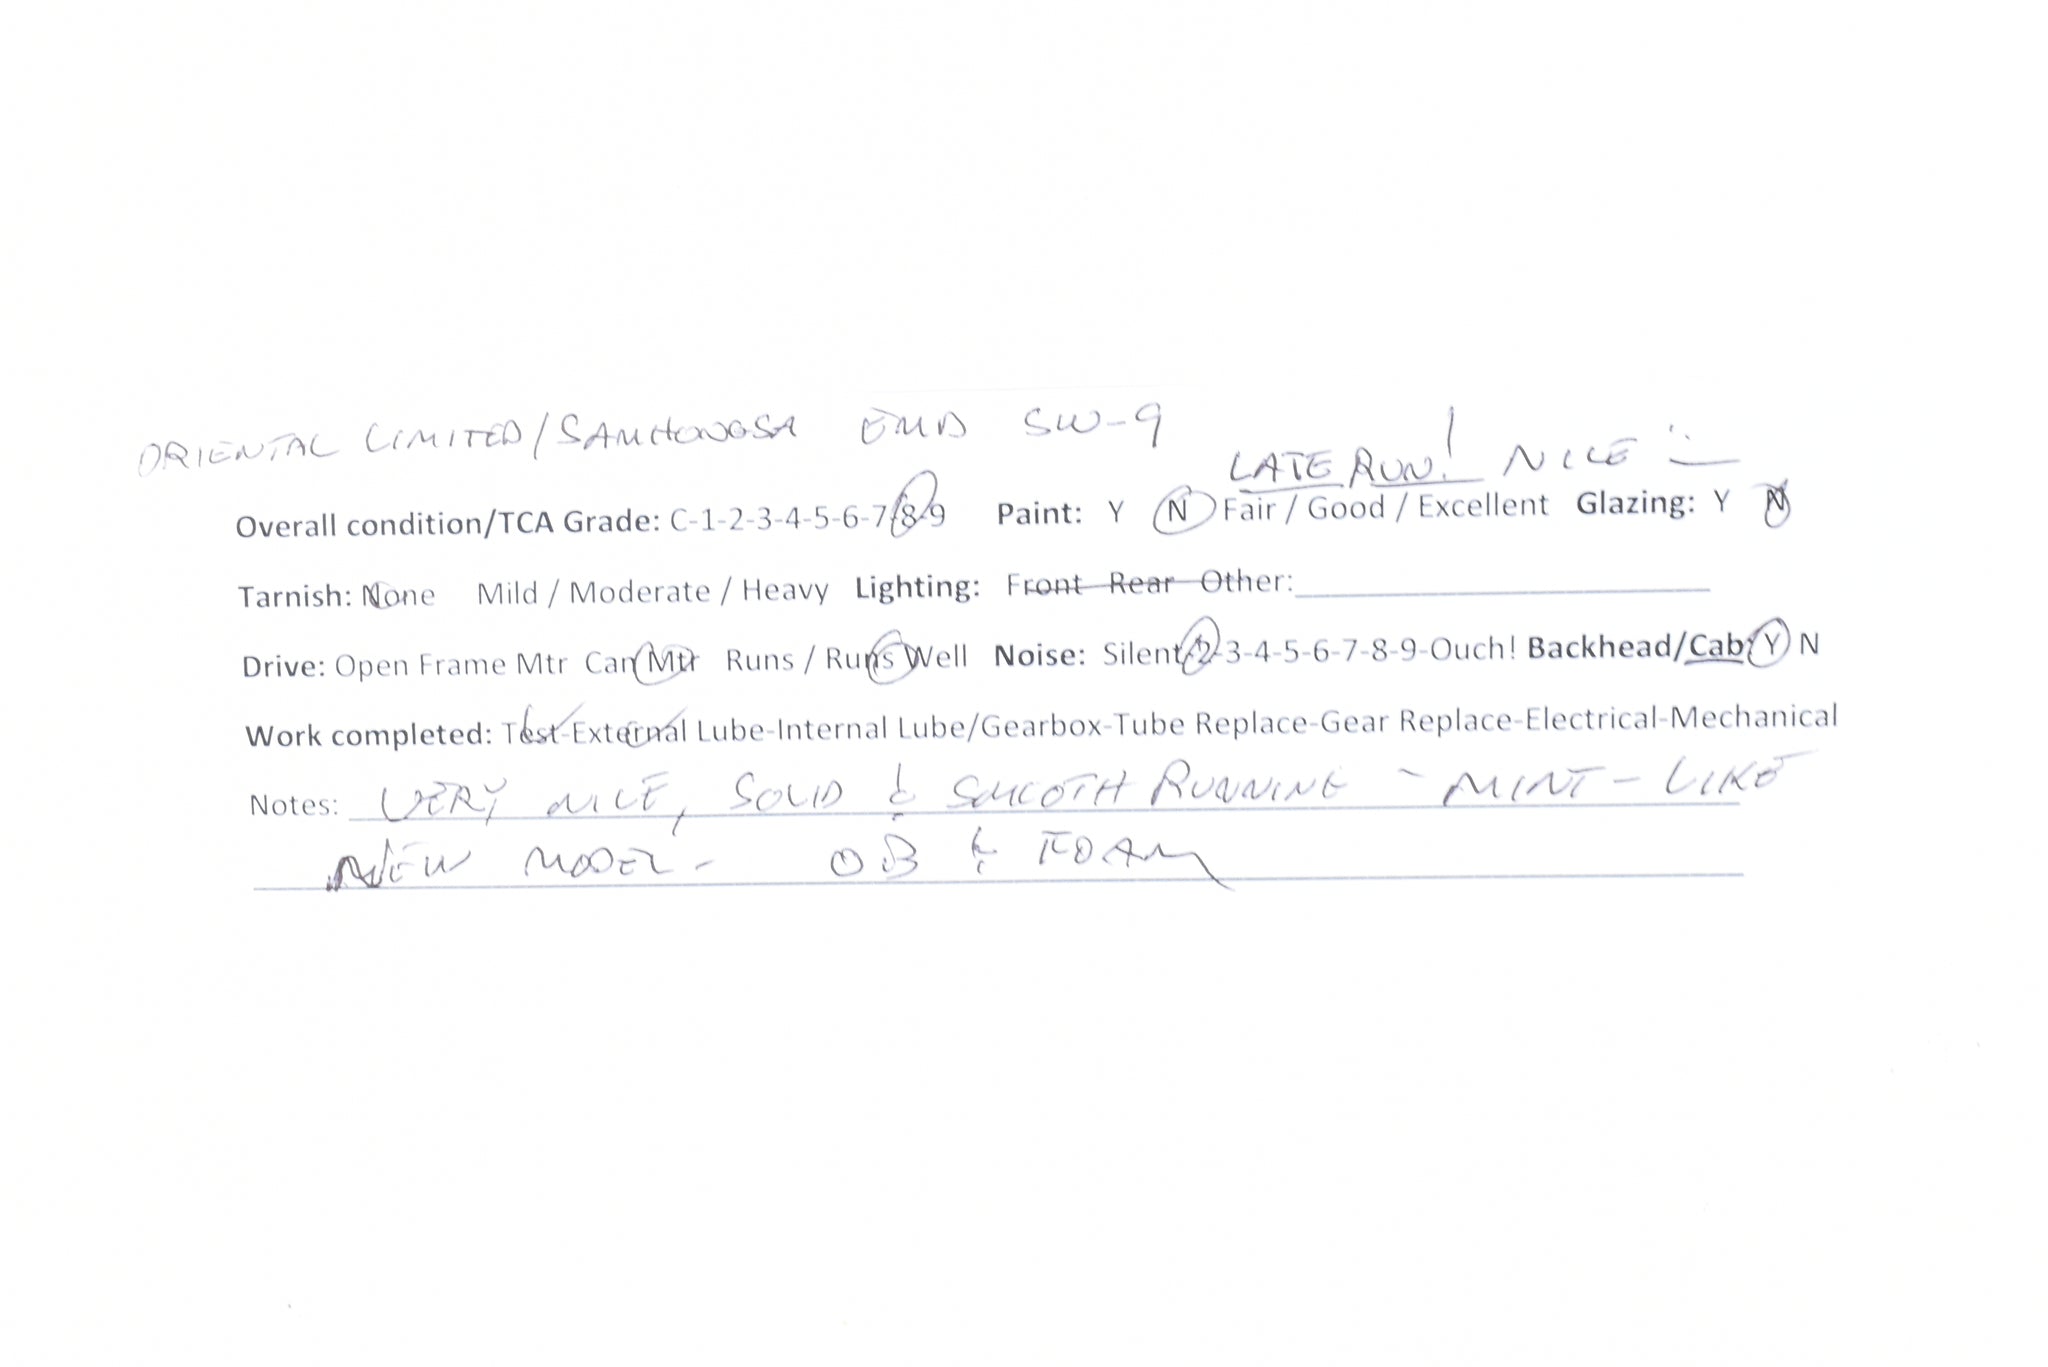 ORIENTAL LIMITED/SAMHONGSA EMD SW-9
LATE RUN! NICE
Overall condition/TCA Grade: C-1-2-3-4-5-6-7-8-9 Paint: Y N Fair / Good / Excellent Glazing: Y N
Tarnish: None Mild / Moderate / Heavy Lighting: Front Rear Other:
Drive: Open Frame Mtr Can Mtr Runs / Runs Well Noise: Silent-2-3-4-5-6-7-8-9-Ouch! Backhead/Cab: Y N
Work completed: Test-External Lube-Internal Lube/Gearbox-Tube Replace-Gear Replace-Electrical-Mechanical
Notes: VERY NICE, SOLID & SMOOTH RUNNING - MINT - LIKE
NEW MODEL - OB & FOAM